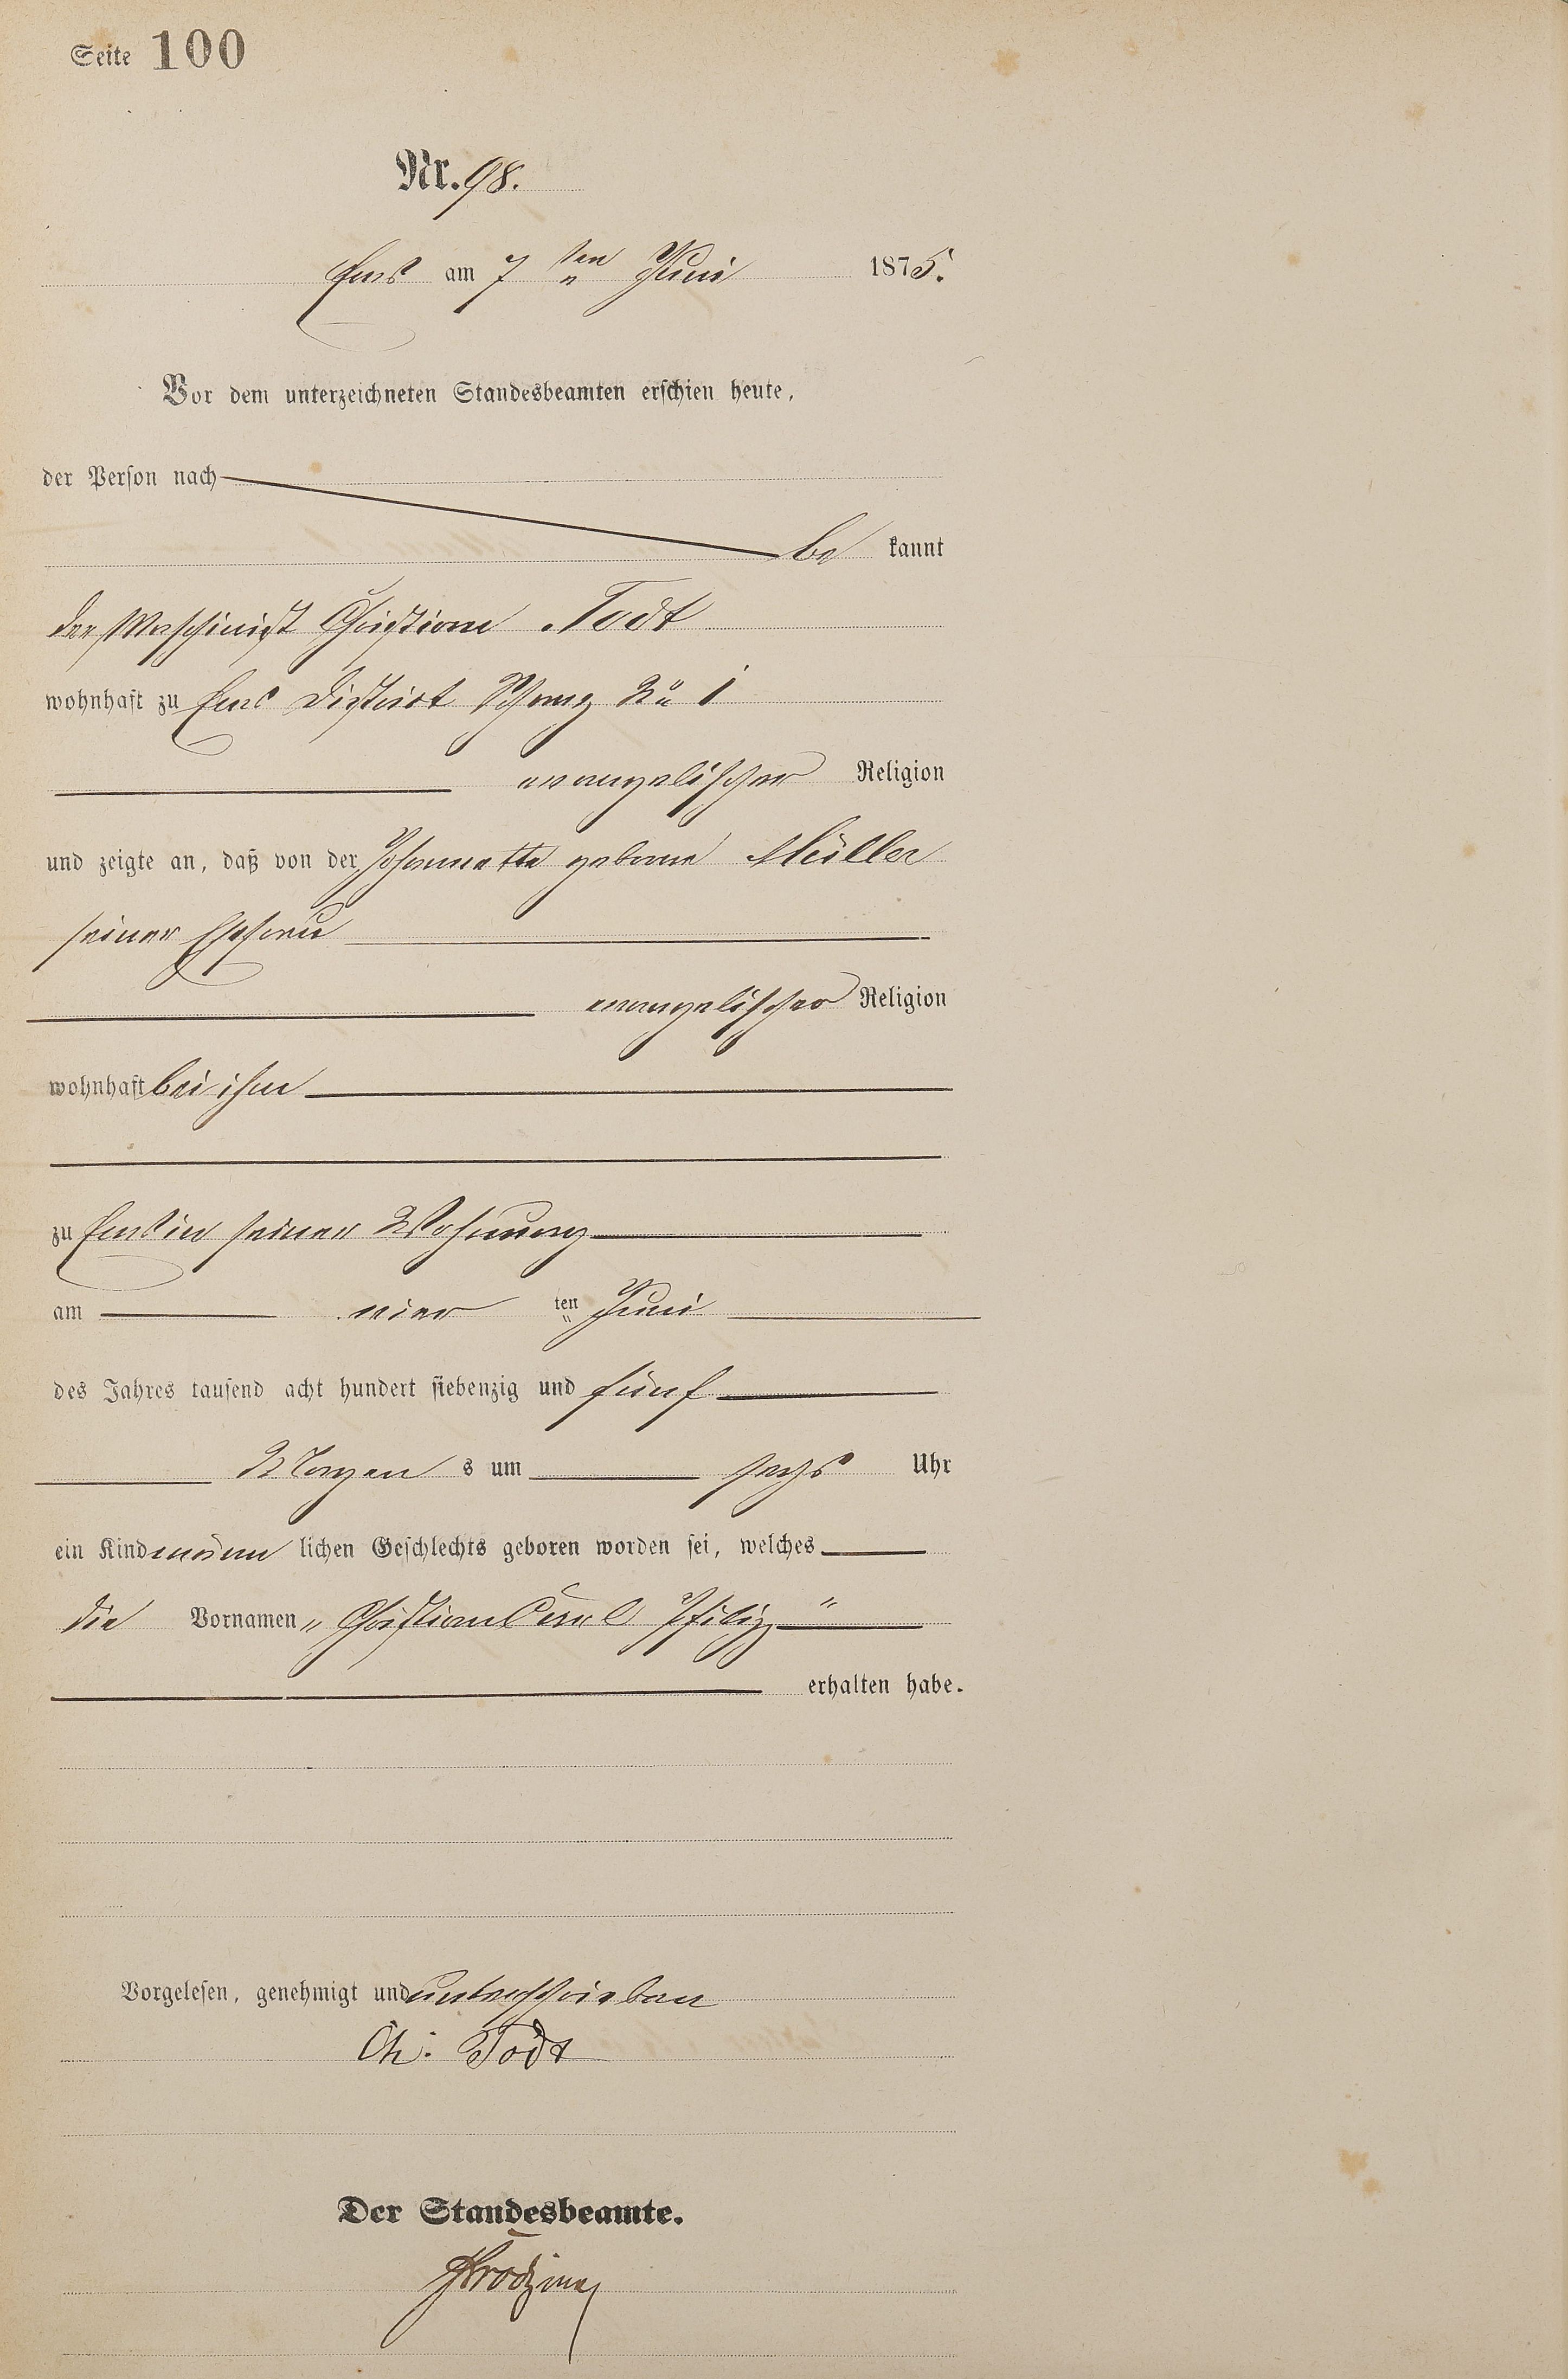 Seite 100
Nr. 98.
Ems am 7 ten Juni 1875.
Vor dem unterzeichneten Standesbeamten erschien heute,
der Person nach
be kannt
der Maschinist Christian Todt
wohnhaft zu Ems District Schanz No 1
evangelischer Religion
und zeigte an, daß von der Johannette geborne Müller
seiner Ehefrau
evangelischer Religion
wohnhaft bei ihm
zu Ems in seiner Wohnung
am vier ten Juni
des Jahres tausend acht hundert siebenzig und fünf
Morgen s um sechs Uhr
ein Kind männ lichen Geschlechts geboren worden sei, welches
die Vornamen „ Christian Carl Philipp "
erhalten habe.
Vorgelesen, genehmigt und unterschrieben
Ch: Todt
Der Standesbeamte.